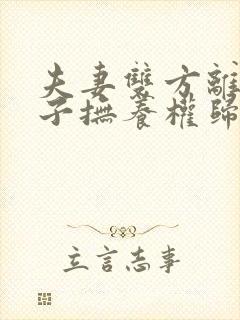 夫妻雙方離
子撫養權歸
立言志事